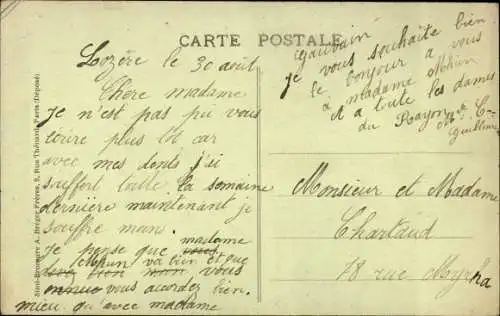 CARTE POSTALE
Lozère le 30 août
Chère madame
je n'est pas pu vous
écrire plus tot car
avec mes dents j'ai
souffert toute la semaine
dernière maintenant je
souffre moin.
je pense que madame
va bien et que
vous
vous acordez bien.
mieu qu'avec madame
je vous souhaite bien
le bonjour a vous
a madame
et a toute les dames
du Rayon
Monsieur et Madame
Chartaud
78 rue Myrha
Simi-Bromure A. Breger Frères, 9, Rue Thénard, Paris (Déposé)